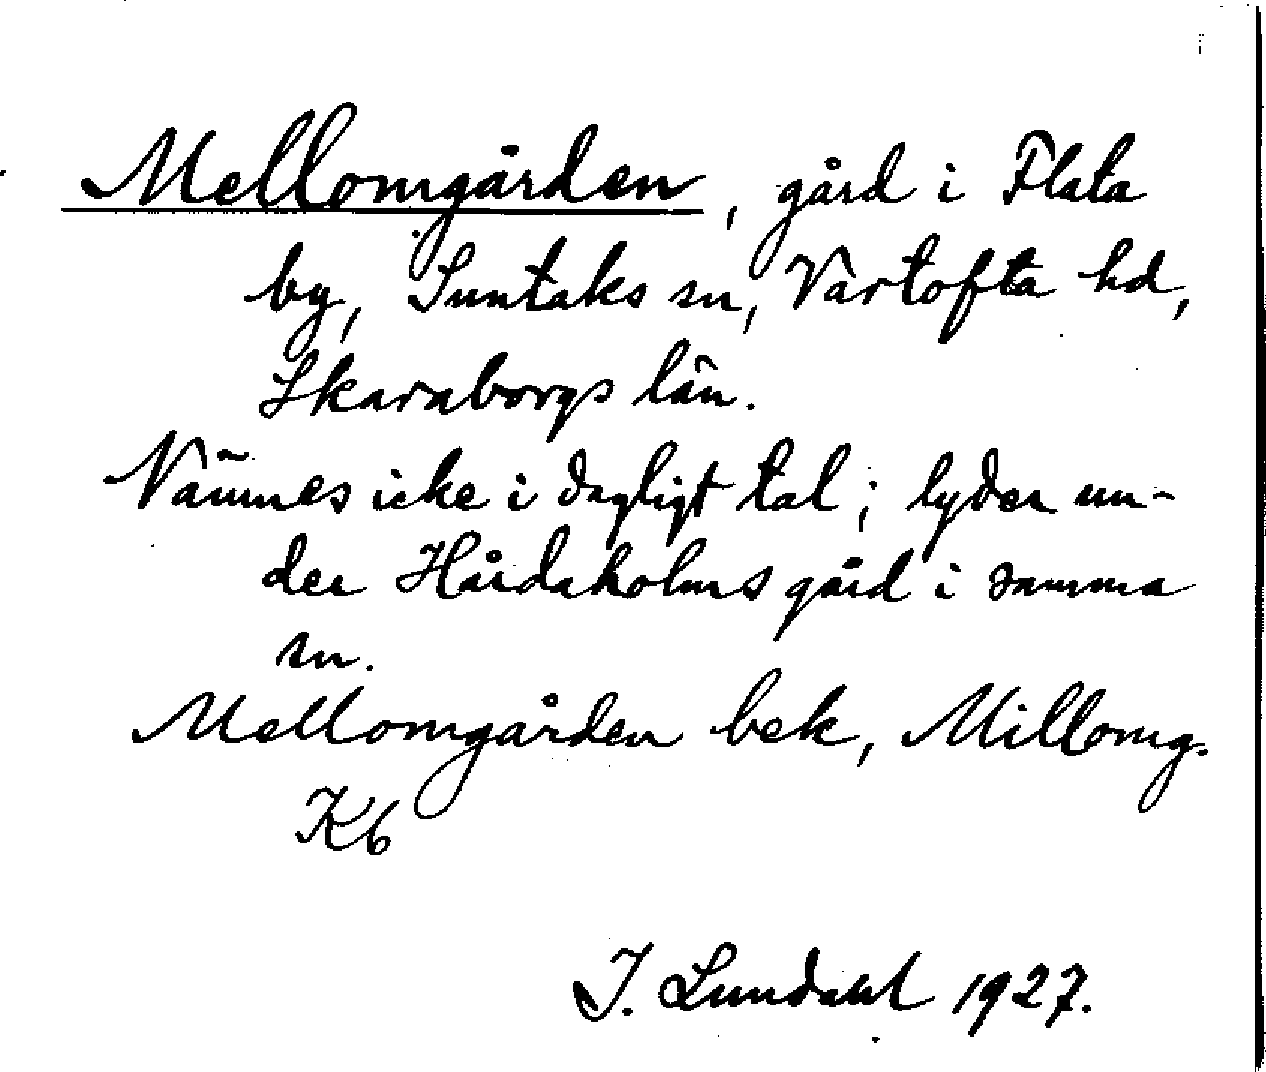 Mellomgården, gård i Flata
by, Suntaks sn, Vartofta hd,
Skaraborgs län.
Nämnes icke i dagligt tal; lyder un-
der Hårdaholms gård i samma
sn.
Mellomgården bek, Millomg.
Kb
I. Lundahl 1927.